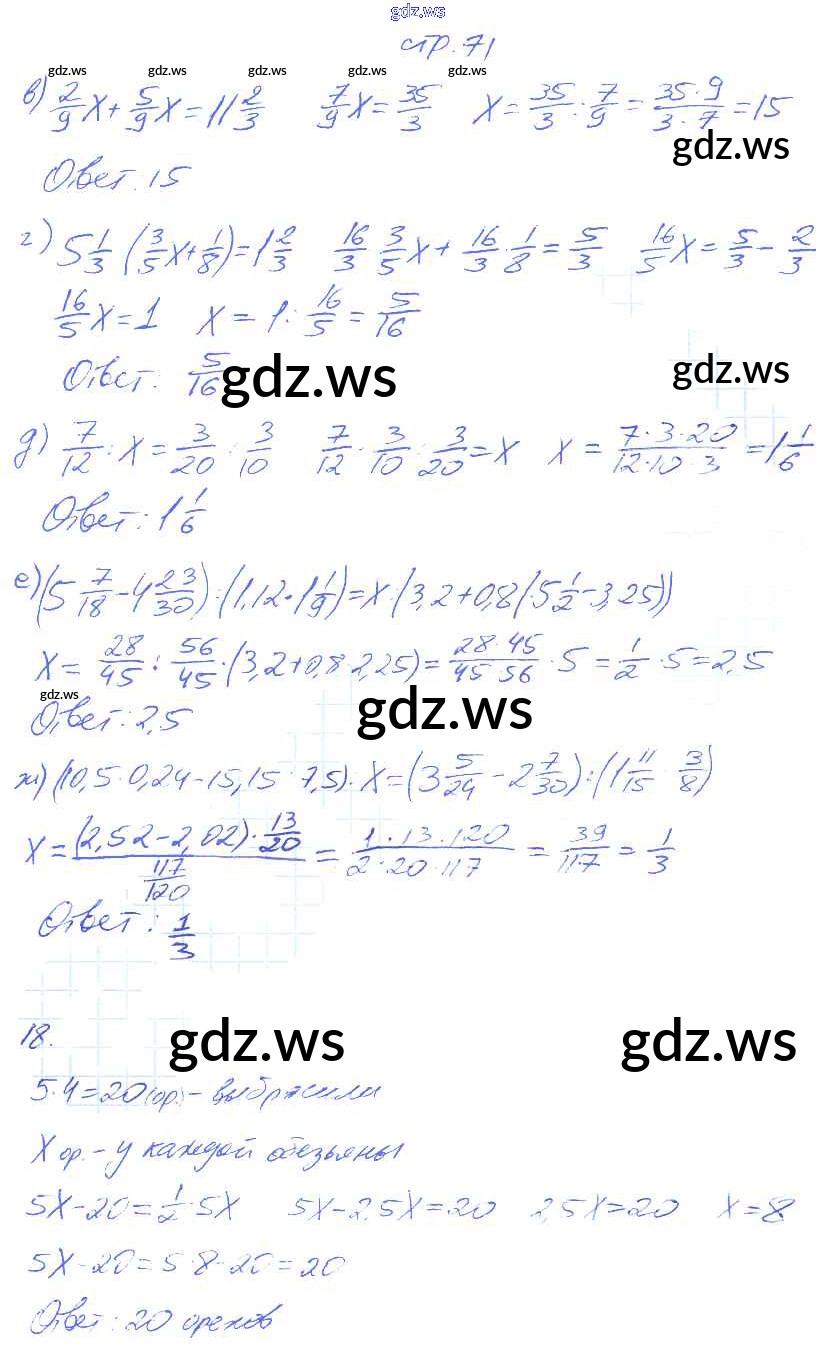 gdz.ws
стр. 71
gdz.ws gdz.ws gdz.ws gdz.ws gdz.ws
в) 2/9 x + 5/9 x = 11 2/3   7/9 x = 35/3   x = 35/3 : 7/9 = 35·9/3·7 = 15
gdz.ws
Ответ. 15
г) 5 1/3 · (3/5 x + 1/8) = 1 2/3   16/3 · 3/5 x + 16/3 · 1/8 = 5/3   16/5 x = 5/3 - 2/3
16/5 x = 1   x = 1 : 16/5 = 5/16
Ответ: 5/16
gdz.ws gdz.ws
д) 7/12 : x = 3/20 : 3/10   7/12 · 3/10 : 3/20 = x   x = 7·3·20/12·10·3 = 1 1/6
Ответ: 1 1/6
е) (5 7/18 - 4 23/30) : (1,12 · 1 1/9) = x : (3,2 + 0,8 · (5 1/2 - 3,25))
x = 28/45 : 56/45 · (3,2 + 0,8 · 2,25) = 28·45/45·56 · 5 = 1/2 · 5 = 2,5
gdz.ws
Ответ: 2,5
gdz.ws
ж) (10,5 · 0,24 - 15,15 : 7,5) : x = (3 5/24 - 2 7/30) : (1 11/15 · 3/8)
x = (2,52 - 2,02) · 13/20 / 117/120 = 1·13·120/2·20·117 = 39/117 = 1/3
Ответ: 1/3
gdz.ws gdz.ws
18.
5·4=20 (ор.) - выбросили
x ор. - у каждой обезьяны
5x - 20 = 1/2 · 5x   5x - 2,5x = 20   2,5x = 20   x = 8
5x - 20 = 5·8 - 20 = 20
Ответ: 20 орехов